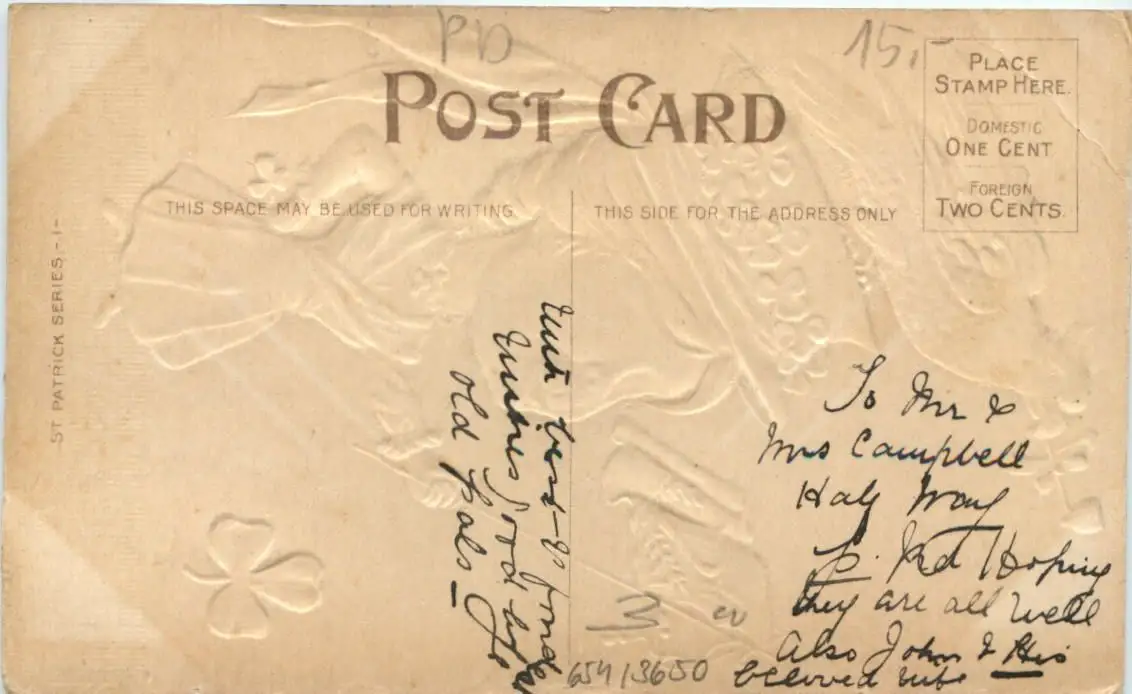 PD
15,-
POST CARD
PLACE
STAMP HERE.
DOMESTIC
ONE CENT
FOREIGN
TWO CENTS.
THIS SPACE MAY BE USED FOR WRITING
THIS SIDE FOR THE ADDRESS ONLY
ST PATRICK SERIES -1-
With best &
wishes
old pals
To Mr &
Mrs Campbell
Half Way
Rd Hoping
they are all well
Also John & His
beloved wife
654 13650